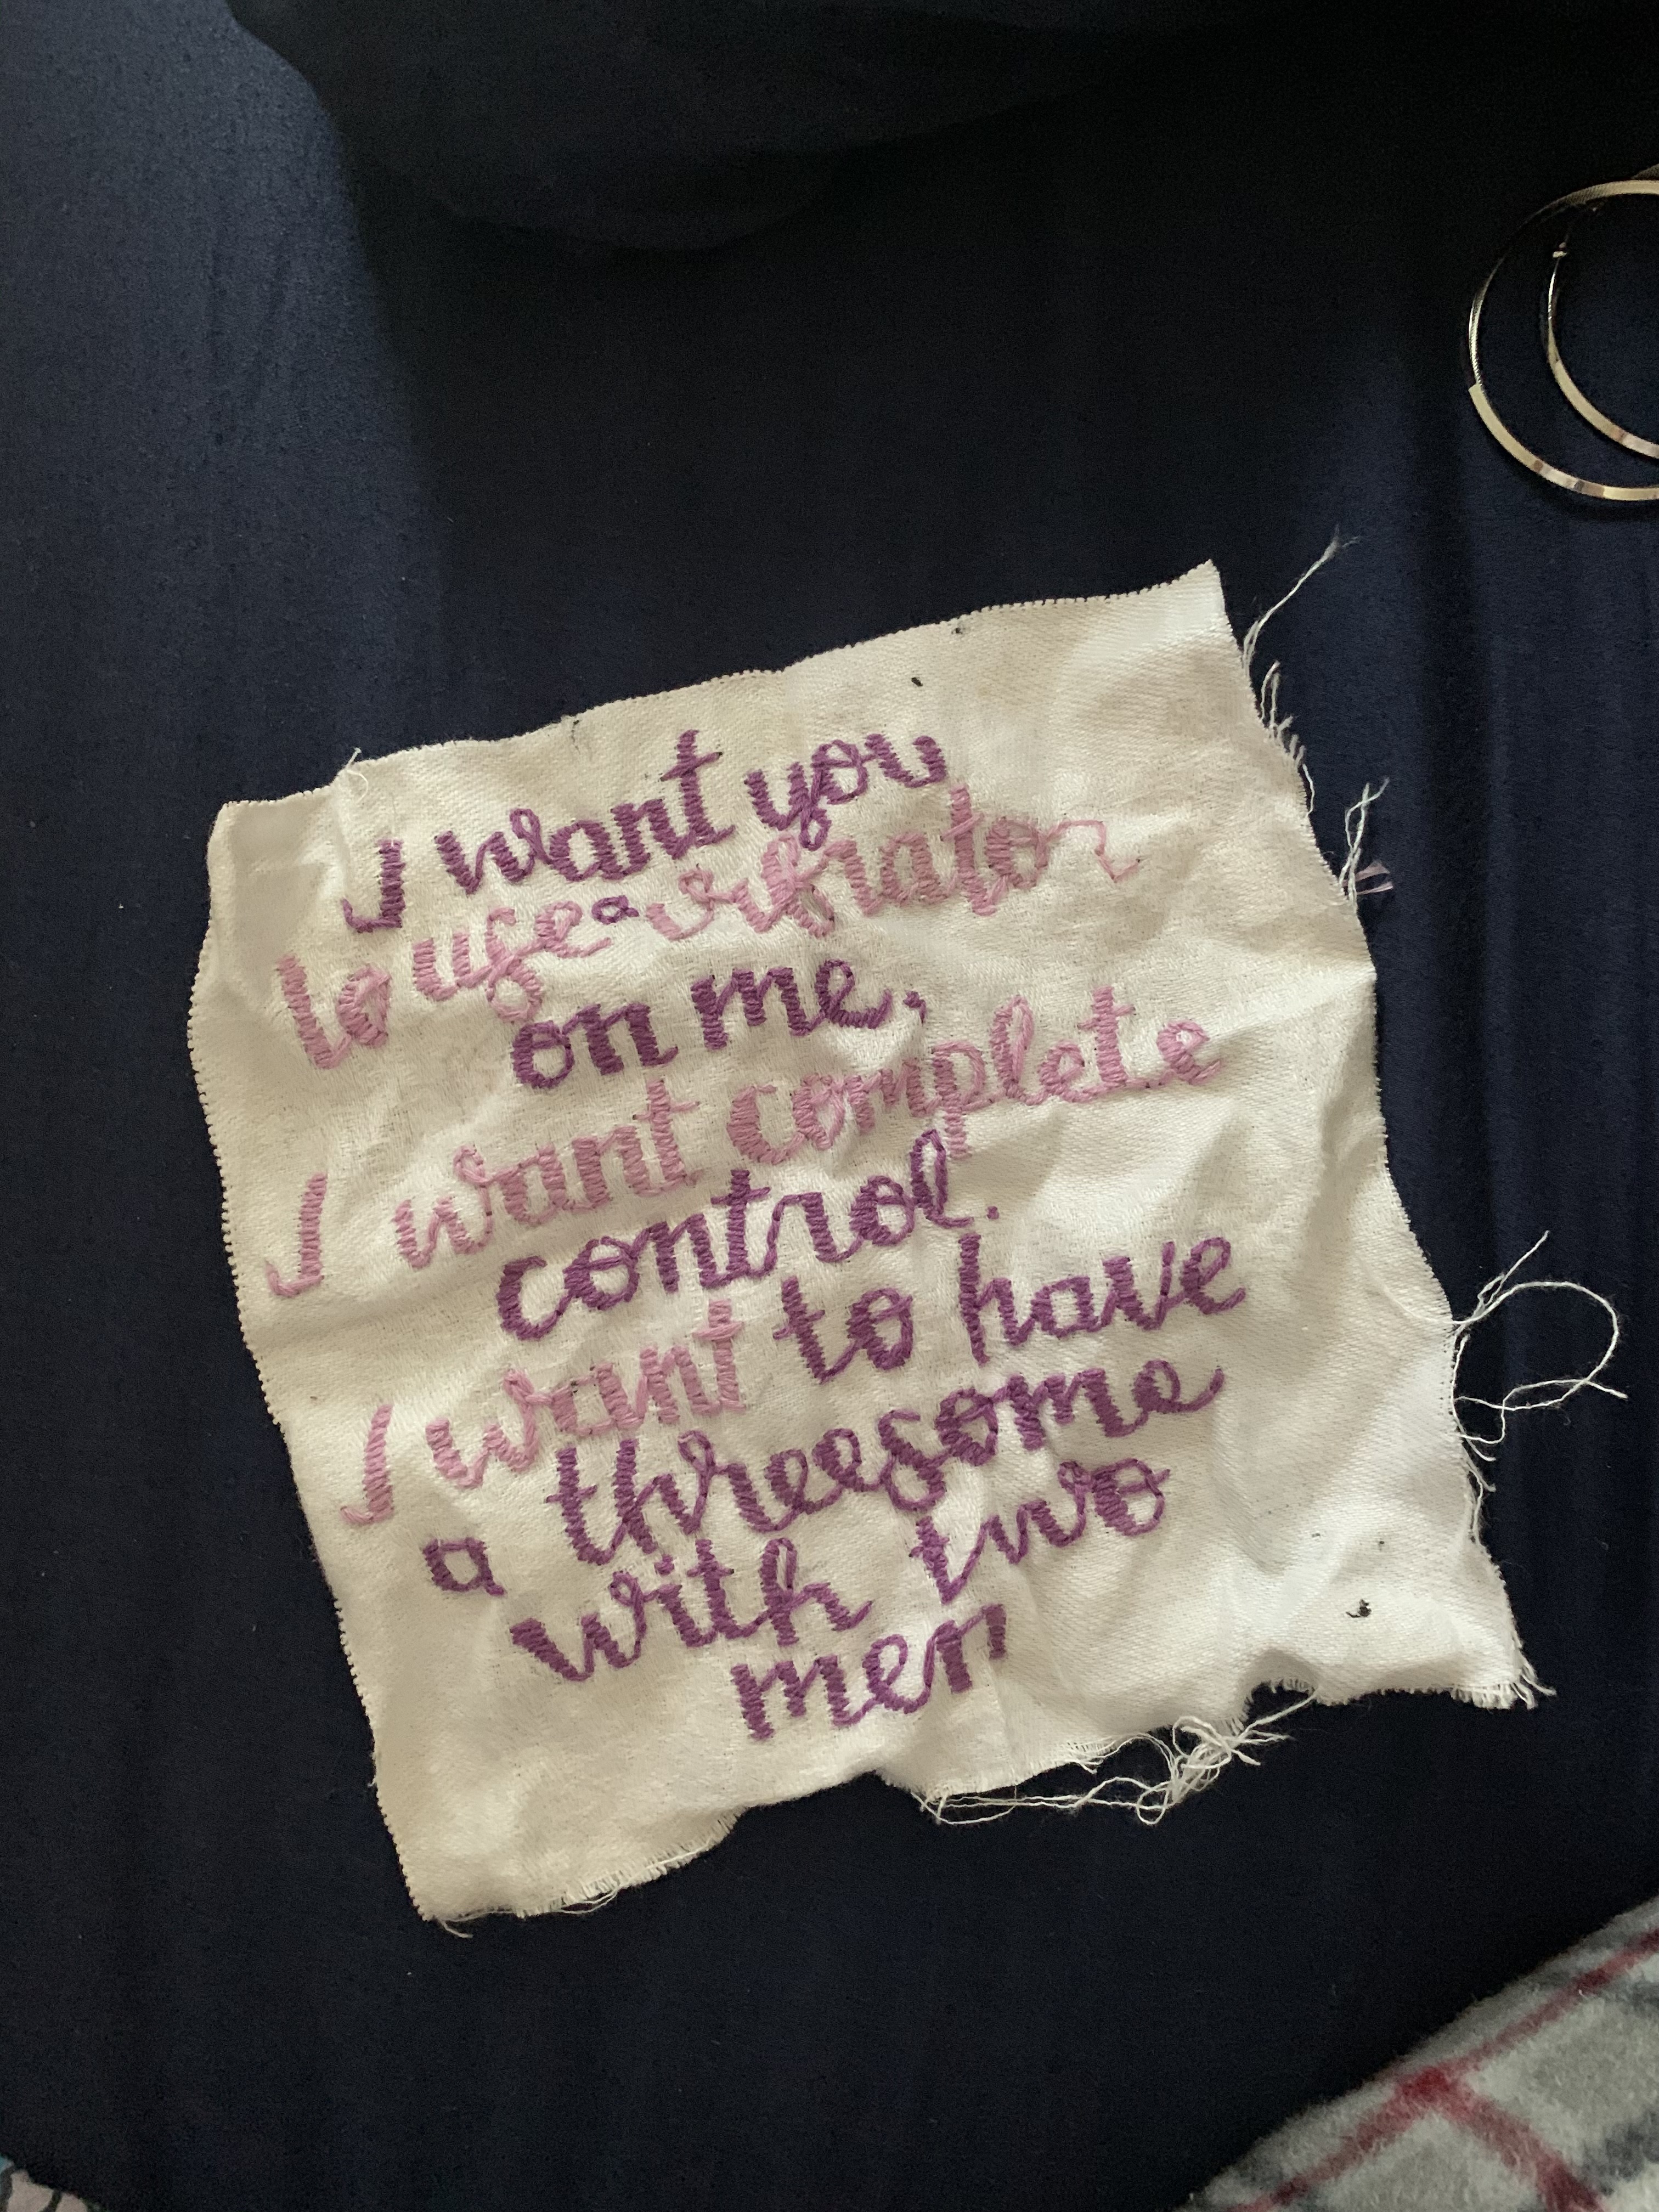 I want you
to use a vibrator
on me,
I want complete
control.
I want to have
a threesome
with two
men